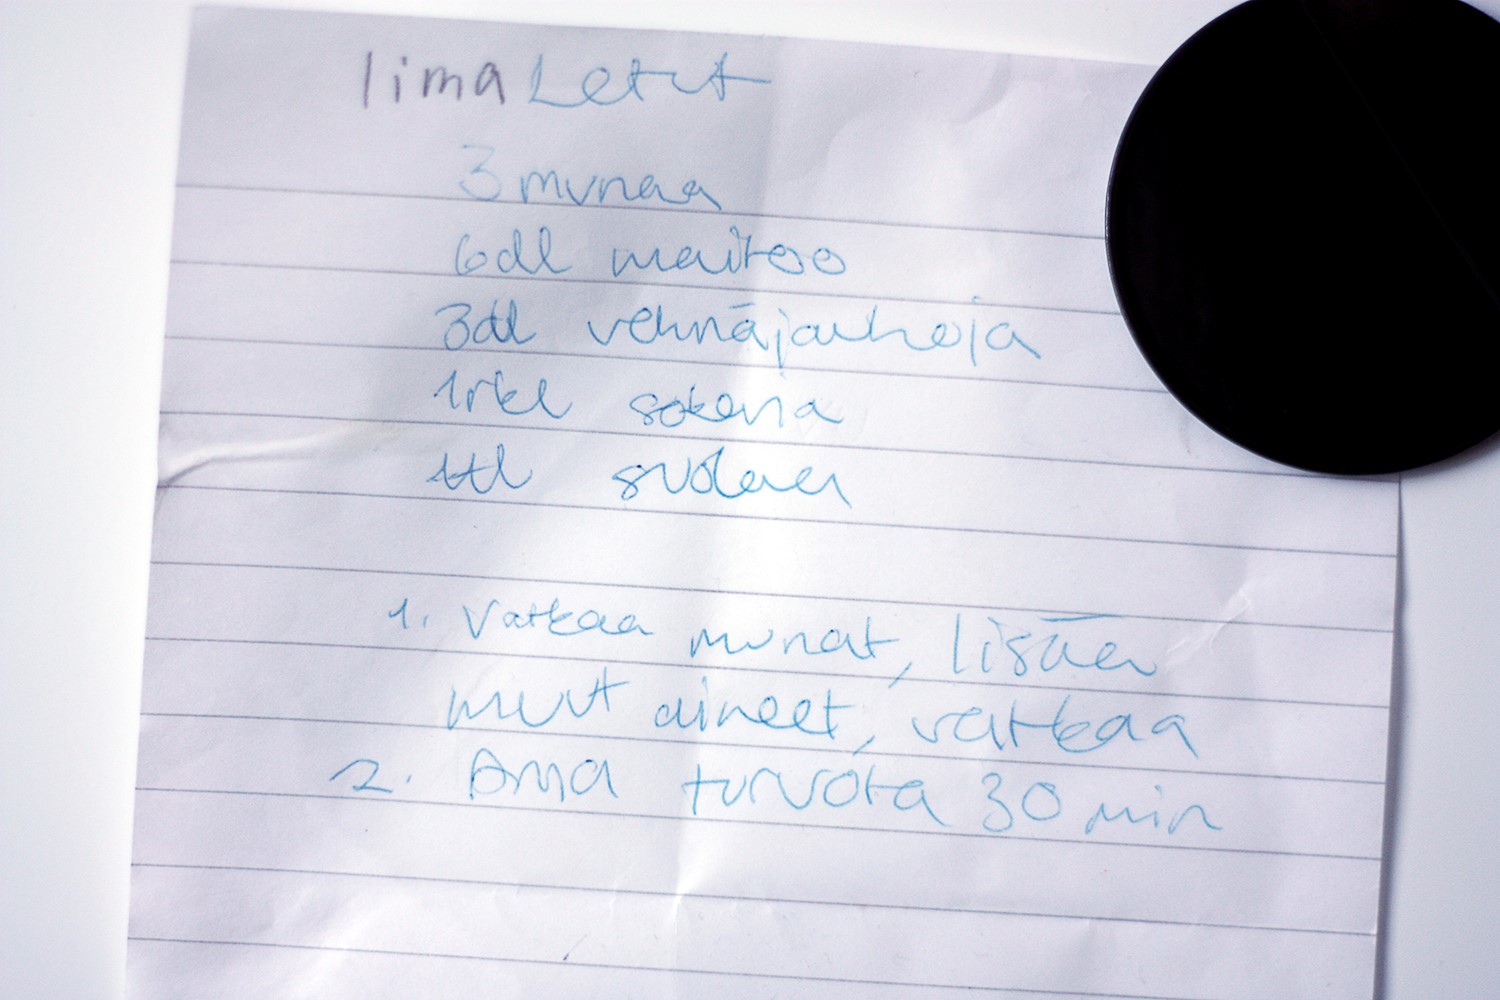 lima Letut
3 munaa
6dl maitoo
3dl vehnäjauhoja
1rkl sokeria
1tl suolaa
1. Vatkaa munat, lisää
muut aineet, vatkaa
2. Anna turvota 30 min